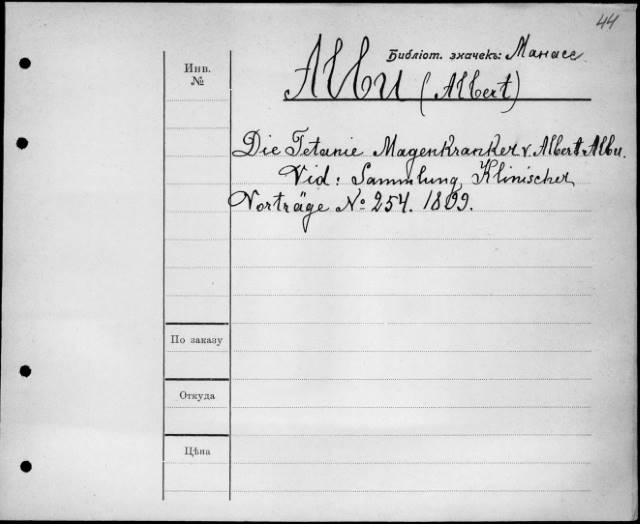 44
Библіот. значекъ: Манасс
Инв.
№
Albu (Albert)
Die Tetanie Magenkranker v. Albert Albu.
Vid: Sammlung Klinischer
Vorträge № 254. 1899.
По заказу
Откуда
Цѣна